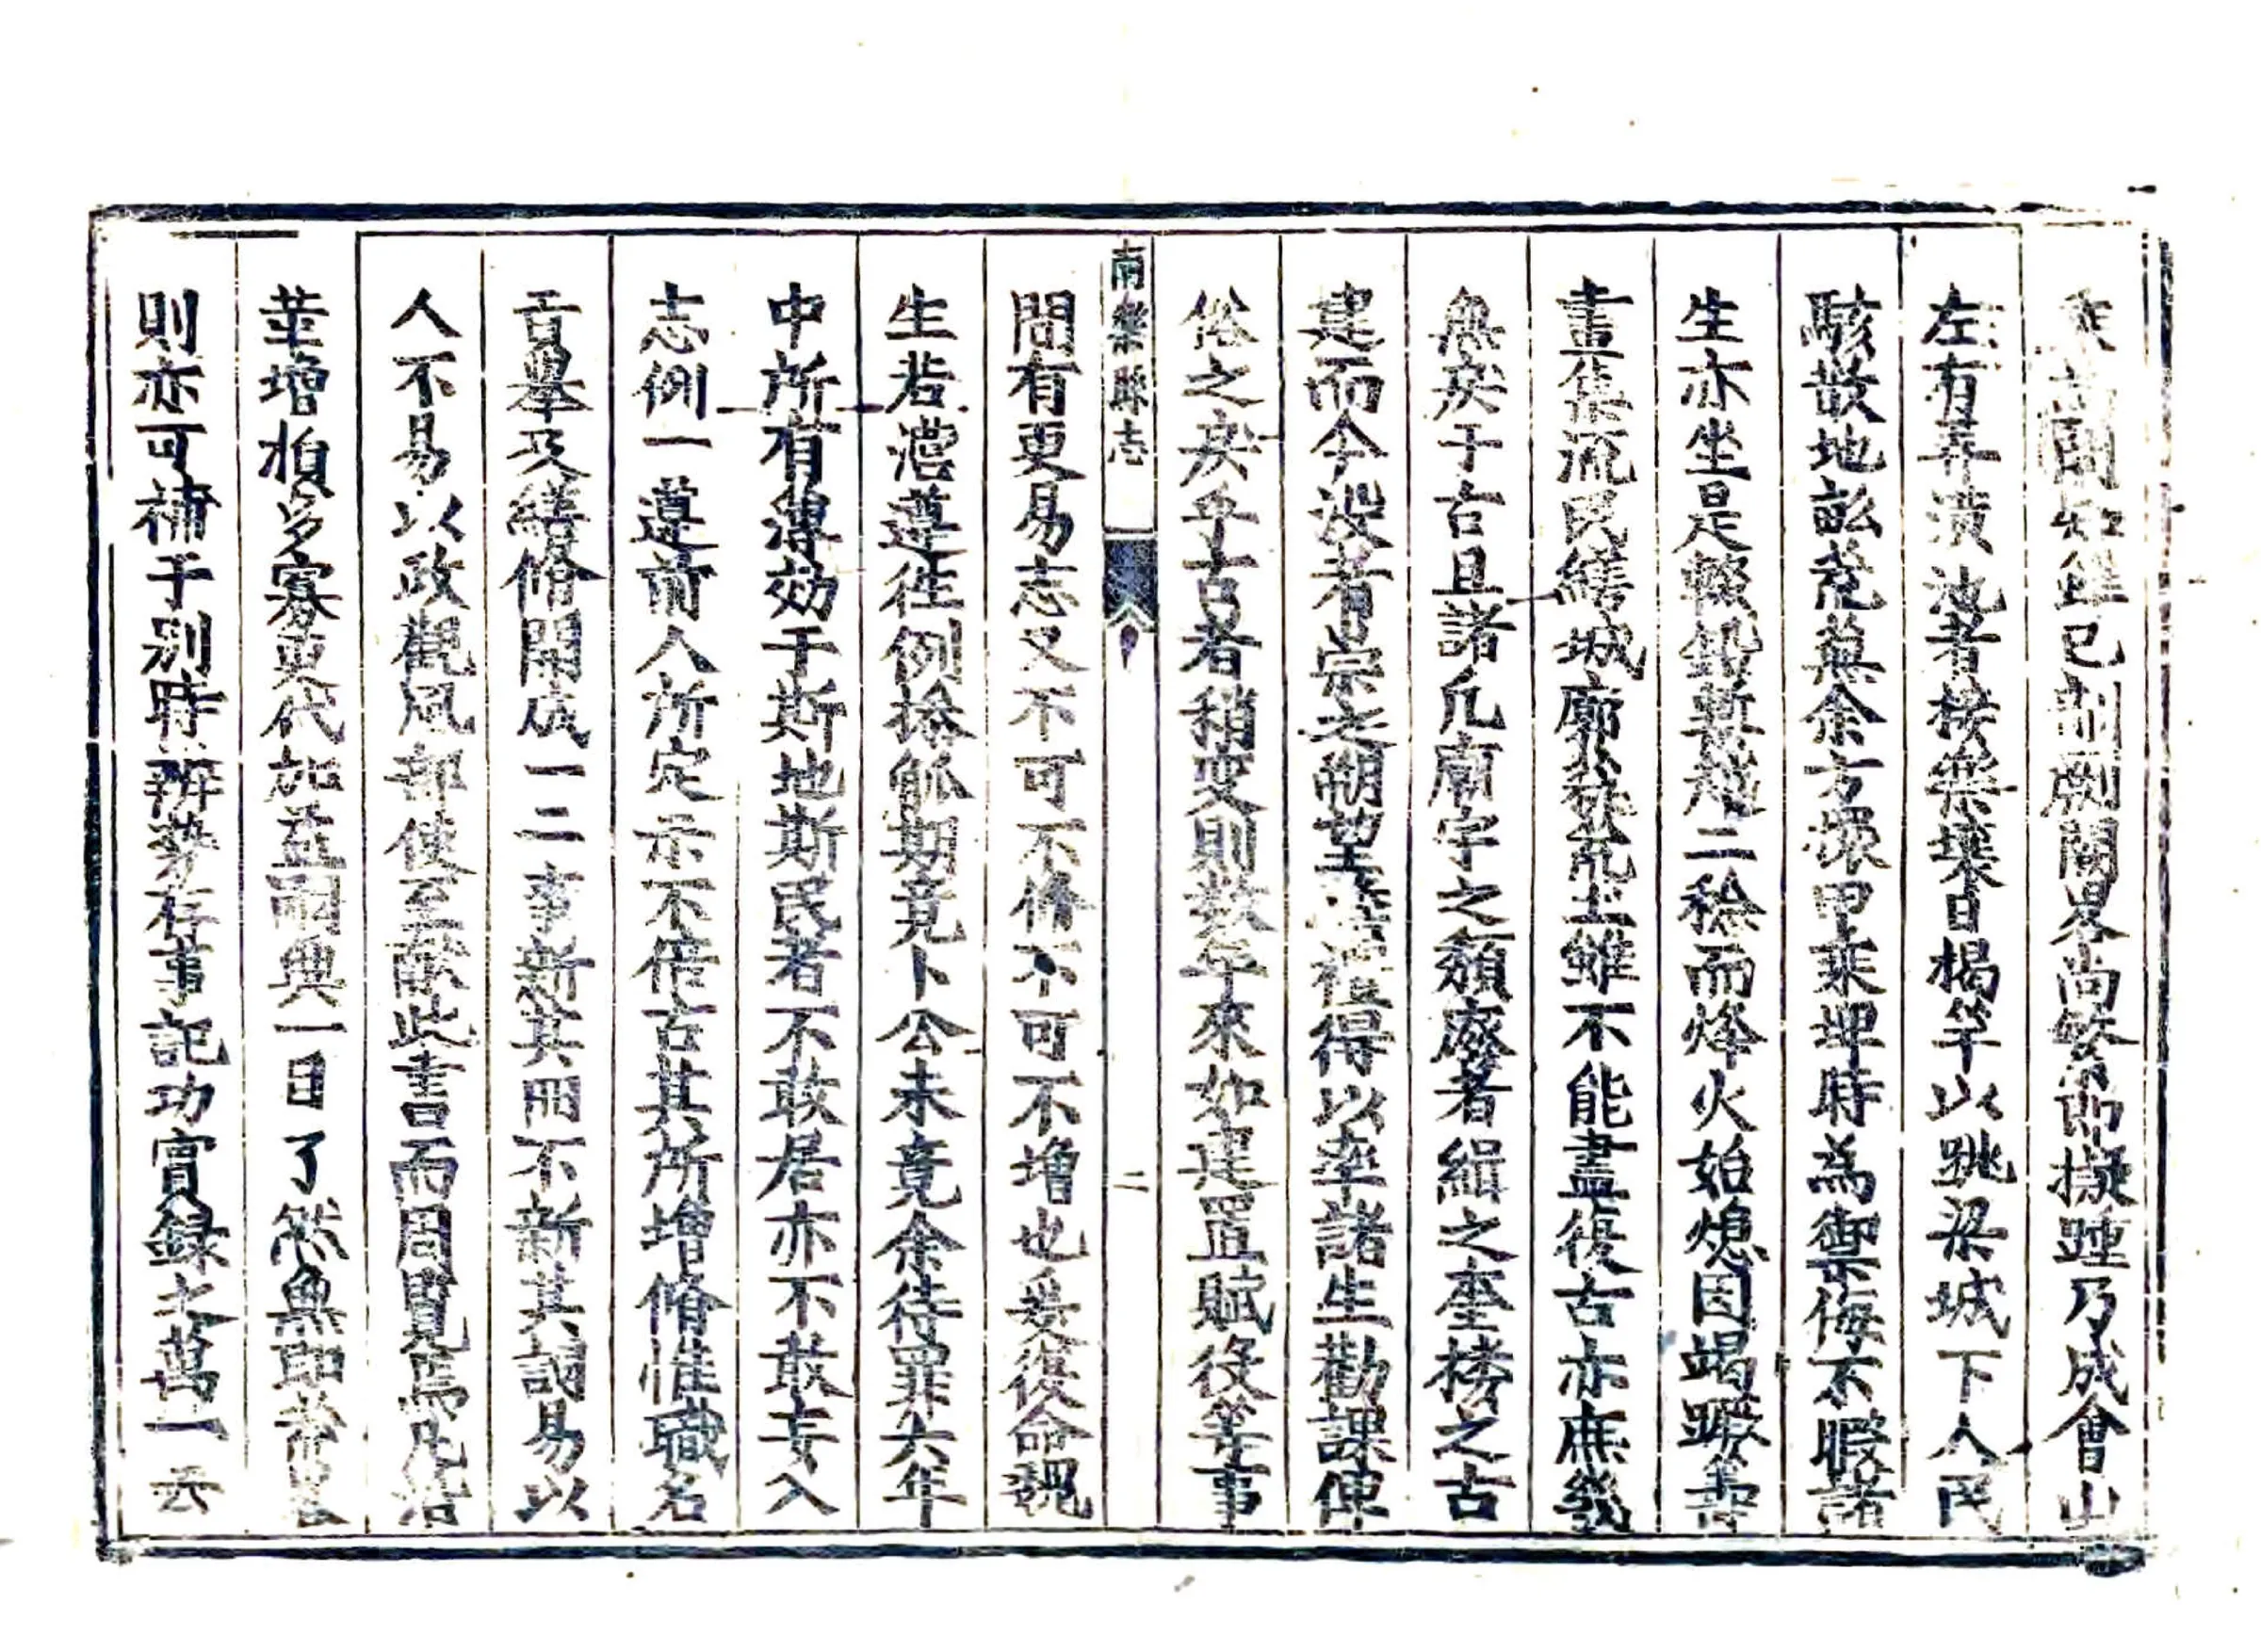 閱如雖已剞劂闕畧尚繁而擬踵乃成會山
左有弄潢池者接樂壤日揭竿以跳梁城下人民
駭散地畝荒蕪余方擐甲乗埤時為禦侮不暇諸
生亦坐是輟鉛槧越二稔而烽火始熄因竭蹶善
畫集流民繕城廓葺荒土雖不能盡復古亦庶幾
無戾于古且諸凡廟宇之頽廢者緝之奎樓之古
建而今没者崇之朔望得以率諸生勸課俾
俗之戾乎古者稍变則数年來如建置賦役等事
南樂縣志
二
間有更易志又不可不修不可不增也爰復命魏
生若澹遵徃例搽觚期竟卜公未竟余待罪六年
中所有薄効于斯地斯民者不敢居亦不敢妄入
志例一遵前人所定示不倍古其所增脩惟職名
貢舉及繕脩開成一二事新其冊不新其詞易以
人不易以政觀風部使至献此書而周覧焉凡沿
革增損多寡更代加益嗣典一目了然無即帝
則亦可補于别時辨势存事記功實録之萬一云